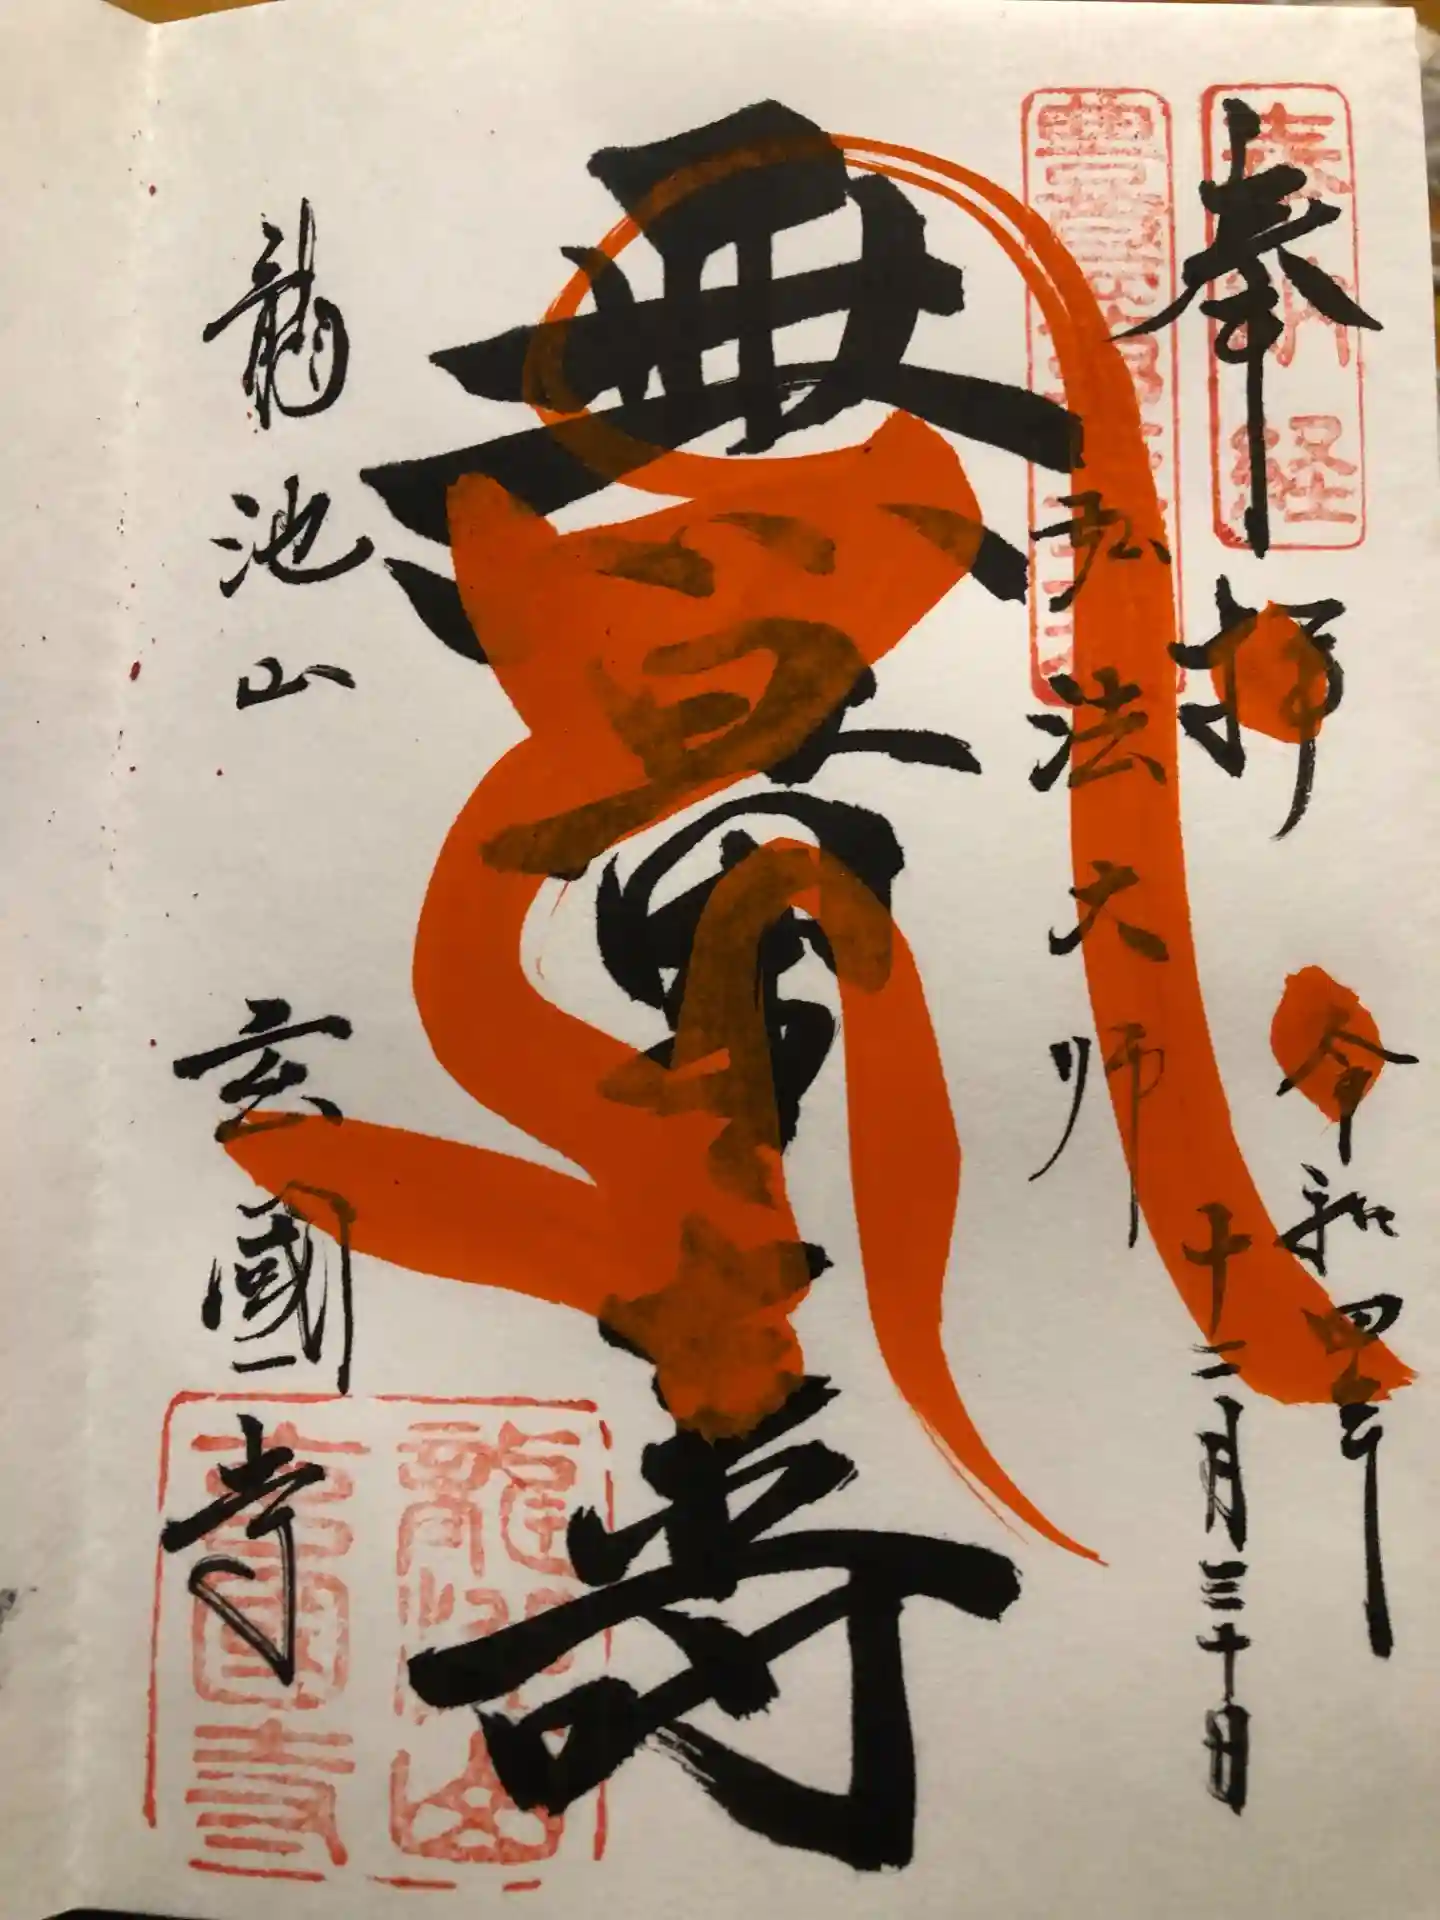 奉拝
奉納経
令和四年
十二月三十日
弘法大師
無量寿
龍池山
玄國寺